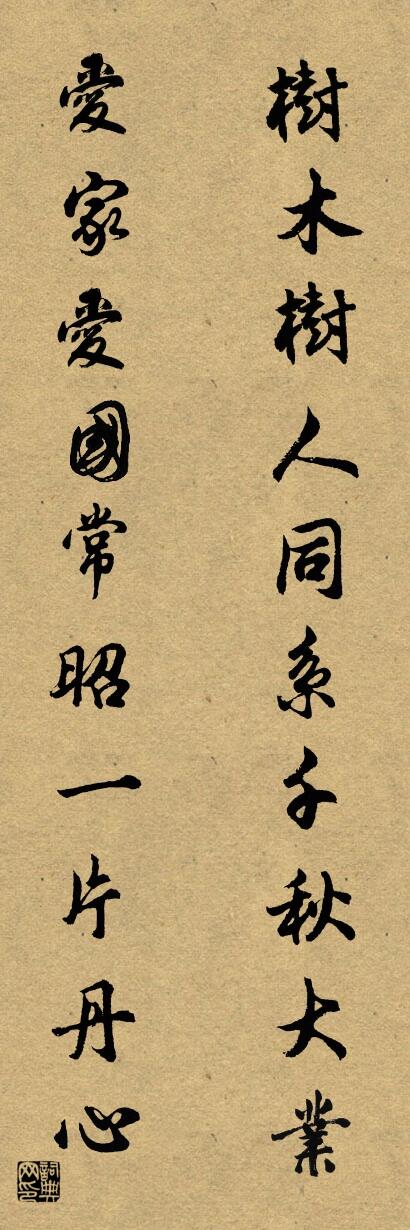 樹木樹人同系千秋大業
愛家愛國常昭一片丹心